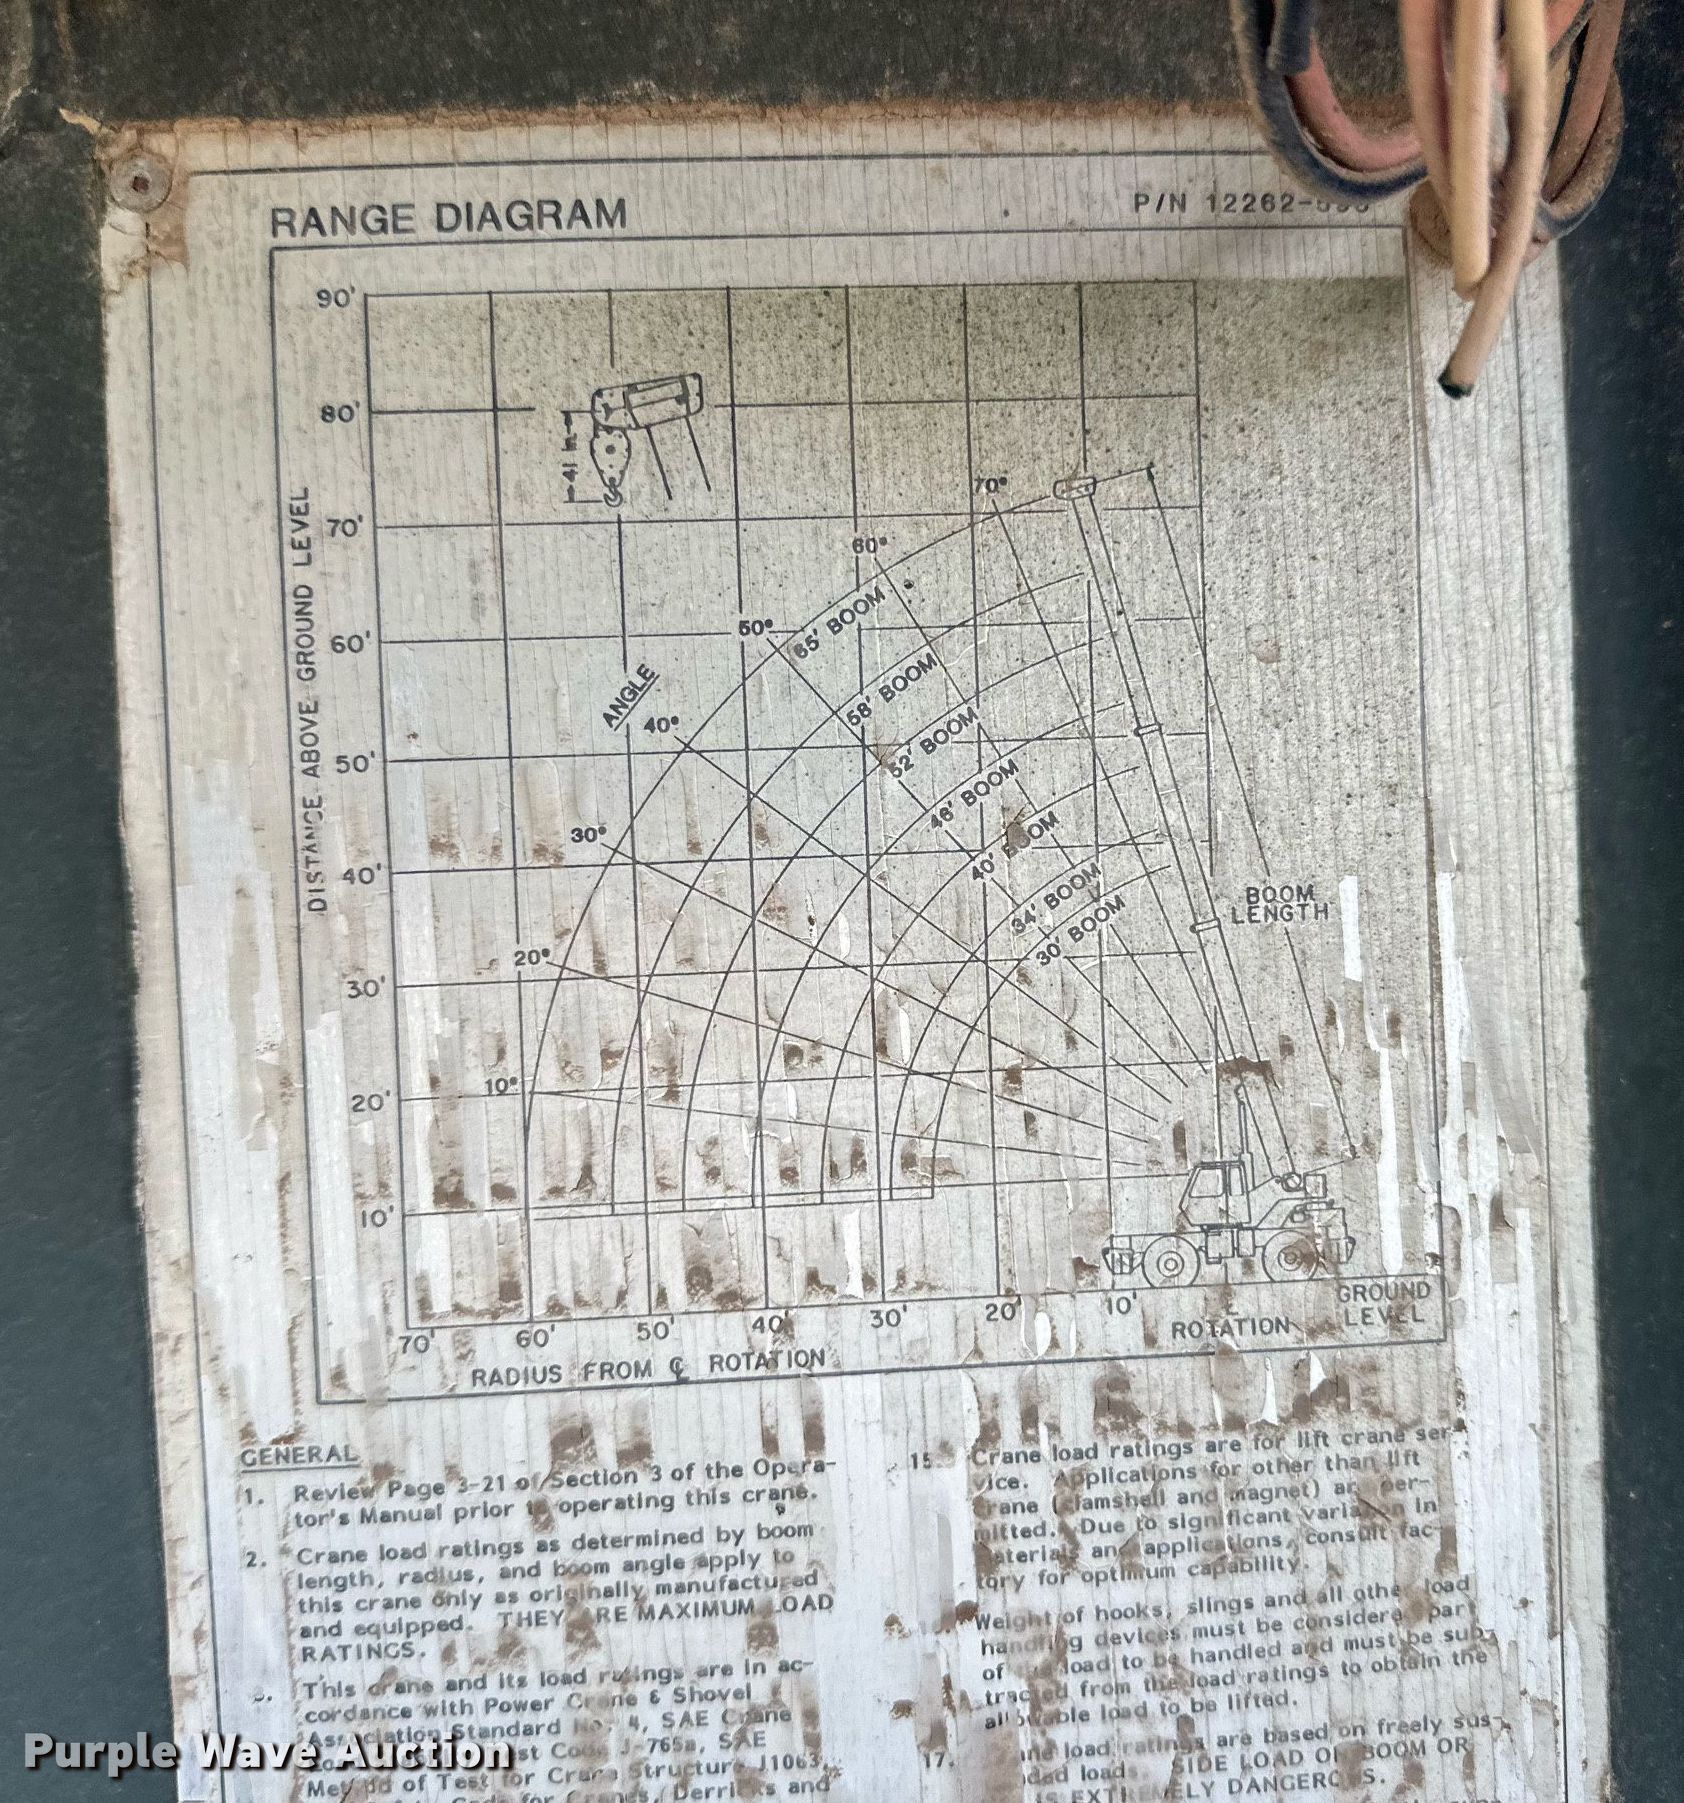 RANGE DIAGRAM
P/N 12262-
90'
80'
70'
60'
50'
40'
30'
20'
10'
DISTANCE ABOVE GROUND LEVEL
41 in
ANGLE
70°
60°
50°
40°
30°
20°
10°
65' BOOM
58' BOOM
52' BOOM
46' BOOM
40' BOOM
34' BOOM
30' BOOM
BOOM
LENGTH
70'
60'
50'
40'
30'
20'
10'
℄
ROTATION
GROUND
LEVEL
RADIUS FROM ℄ ROTATION
GENERAL
1. Review Page 3-21 of Section 3 of the Opera-
tor's Manual prior to operating this crane.
2. Crane load ratings as determined by boom
length, radius, and boom angle apply to
this crane only as originally manufactured
and equipped. THEY ARE MAXIMUM LOAD
RATINGS.
This crane and its load ratings are in ac-
cordance with Power Crane & Shovel
Association Standard No. 4, SAE Crane
J-765a, SAE
Method of Test for Crane Structure J1063,
for Cranes, Derricks and
15. Crane load ratings are for lift crane ser-
vice. Applications for other than lift
crane (clamshell and magnet) are per-
mitted. Due to significant variation in
materials and applications, consult fac-
tory for optimum capability.
Weight of hooks, slings and all other load
handling devices must be considered part
of load to be handled and must be sub-
tracted from the load ratings to obtain the
allowable load to be lifted.
17. load ratings are based on freely sus-
loads. SIDE LOAD OF BOOM OR
IS EXTREMELY DANGEROUS.
Purple Wave Auction